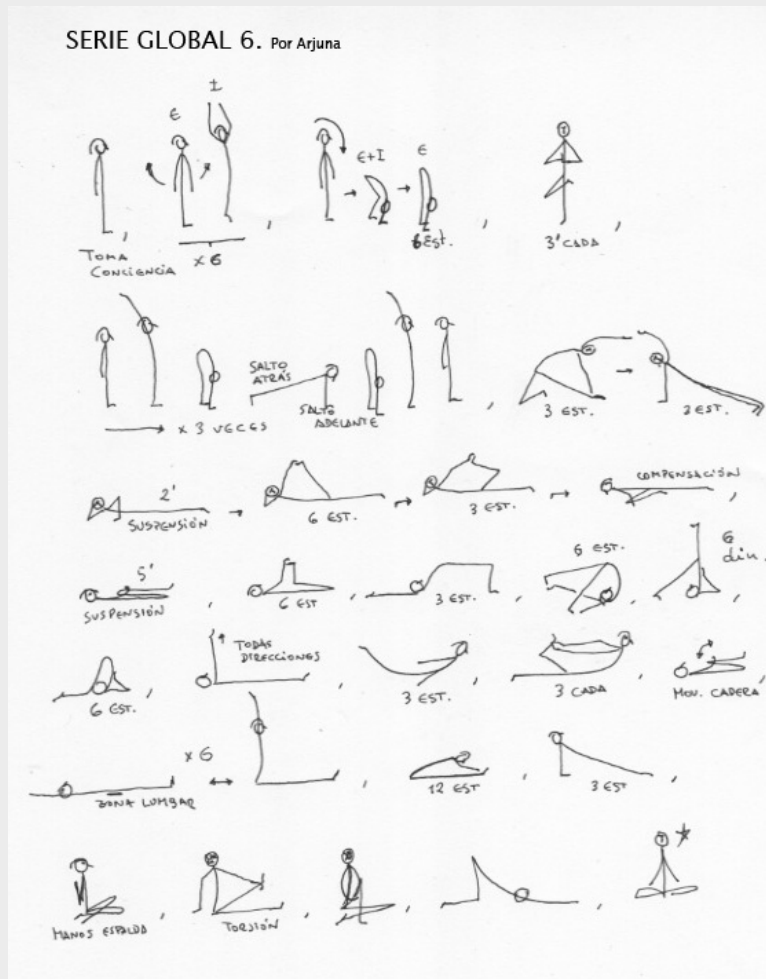 SERIE GLOBAL 6. Por Arjuna
I
E
E+I
E
6 EST.
TOMA
CONCIENCIA
x 6
3' CADA
SALTO
ATRÁS
SALTO
ADELANTE
x 3 VECES
3 EST.
3 EST.
2'
SUSPENSIÓN
6 EST.
3 EST.
COMPENSACIÓN
5'
SUSPENSIÓN
6 EST
3 EST.
6 EST.
6
din.
6 EST.
TODAS
DIRECCIONES
3 EST.
3 CADA
MOV. CADERA
x 6
ZONA LUMBAR
12 EST
3 EST
MANOS ESPALDA
TORSIÓN